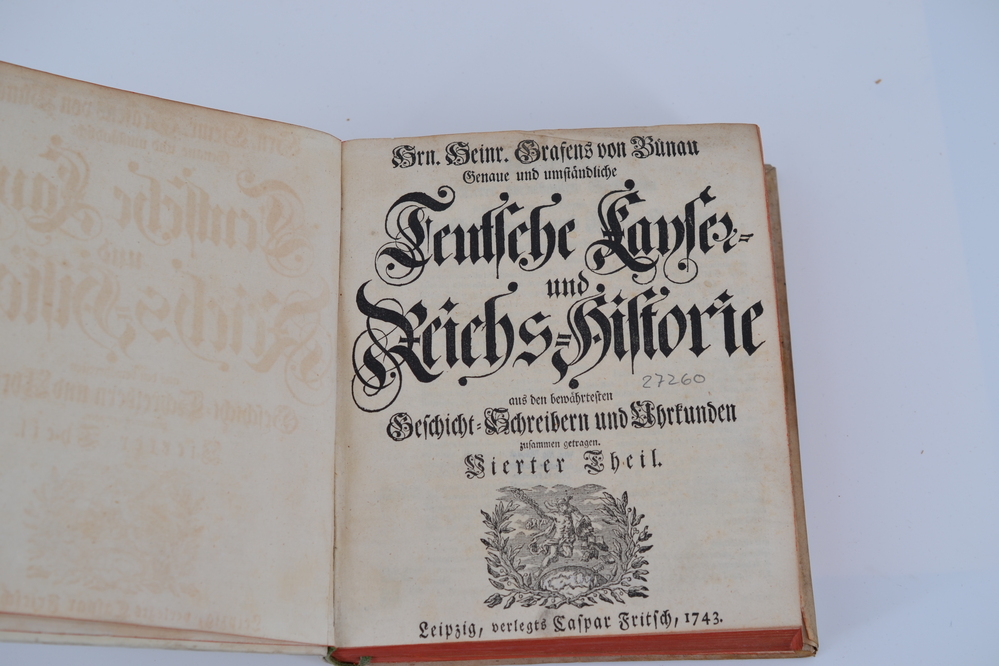 Hrn. Heinr. Grafens von Bünau
Genaue und umständliche
Teutsche Kayser-
und
Reichs-Historie
27260
aus den bewährtesten
Geschicht-Schreibern und Uhrkunden
zusammen getragen.
Vierter Theil.
Leipzig, verlegts Caspar Fritsch, 1743.